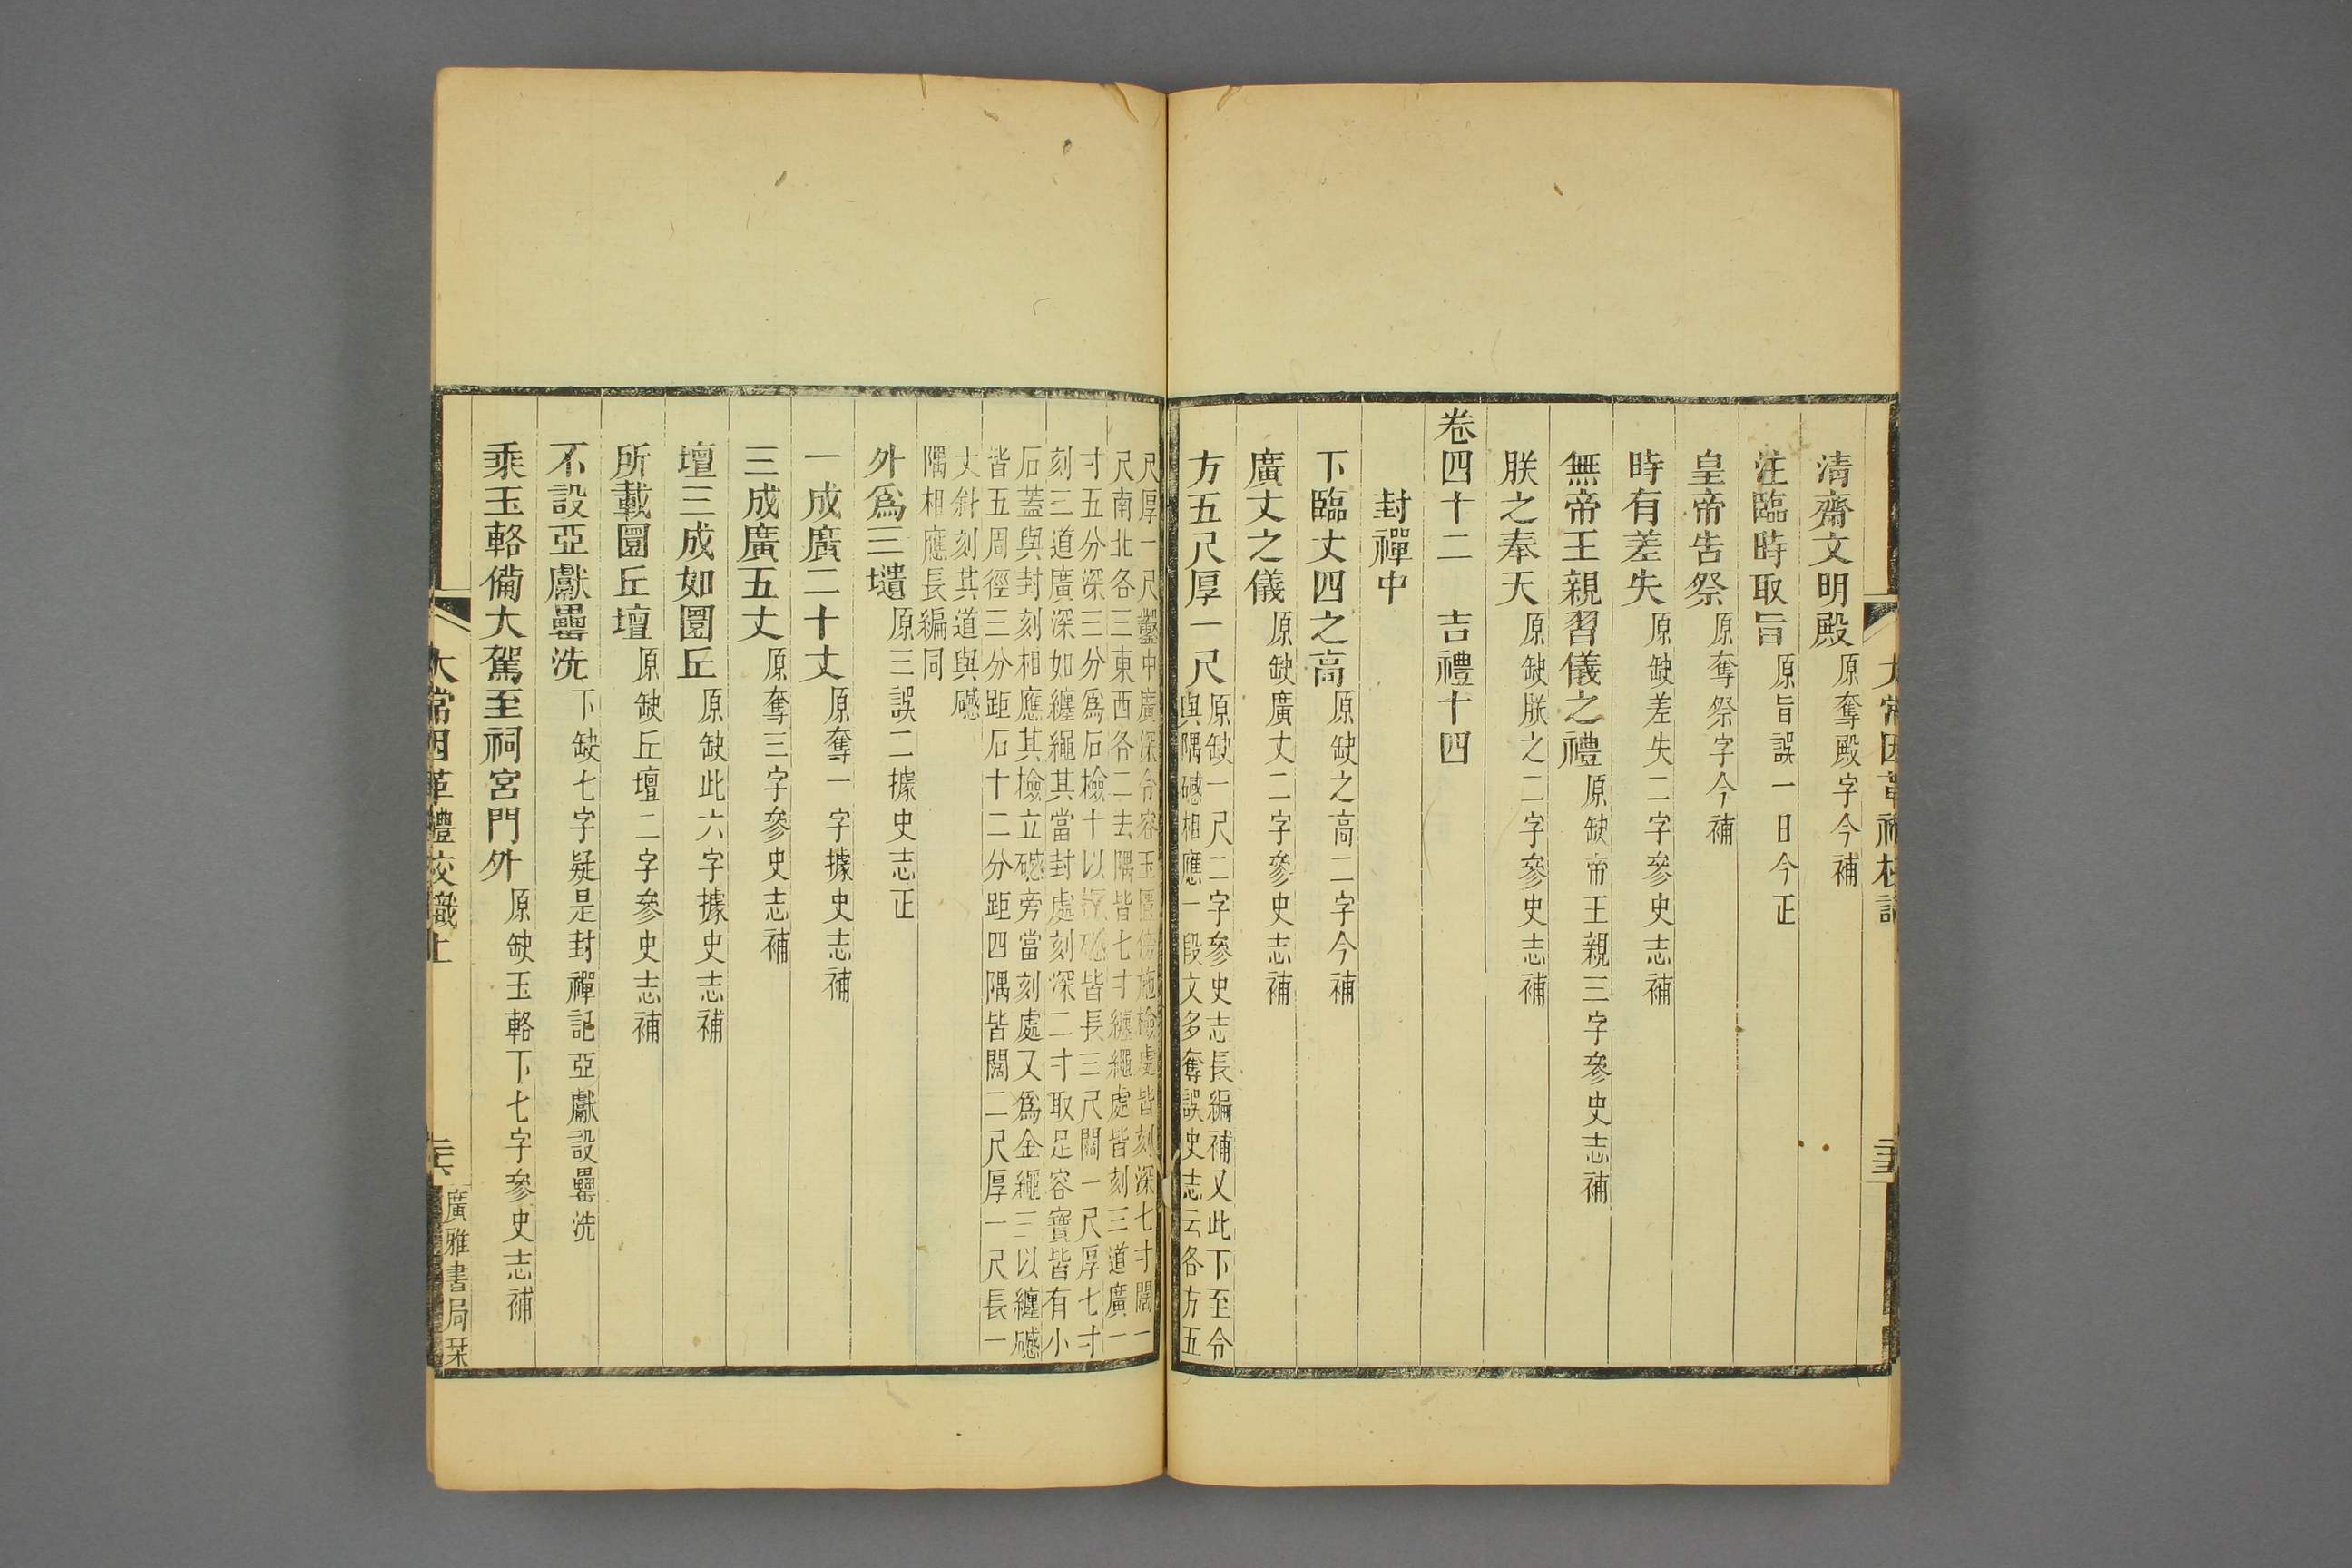 清齋文明殿原奪殿字今補
注臨時取旨原旨誤一日今正
皇帝告祭原奪祭字今補
時有差失原缺差失二字參史志補
無帝王親習儀之禮原缺帝王親三字參史志補
朕之奉天原缺朕之二字參史志補
卷四十二　吉禮十四
封禪中
下臨丈四之高原缺之高二字今補
廣丈之儀原缺廣丈二字參史志補
方五尺厚一尺原缺一尺二字參史志長編補又此下至分
與隅䃭相應一段文多奪誤史志云各方五
尺厚一尺鑿中廣深令容玉匱傍施檢處皆刻深七寸闊一
尺南北各三東西各二去隅皆七寸纏繩處皆刻三道廣一
寸五分深三分為石檢十以撿䃭皆長三尺闊一尺厚七寸
刻三道廣深如纏繩其當封處刻深二寸取足容寶皆有小
石蓋與封刻相應其檢立䃭旁當刻處又為金繩三以纏䃭
皆五周徑三分距石十二分距四隅皆闊二尺厚一尺長一
丈斜刻其道與䃭
隅相應長編同
外爲三壝原三誤二據史志正
一成廣二十丈原奪一字據史志補
三成廣五丈原奪三字參史志補
壇三成如圜丘原缺此六字據史志補
所載圜丘壇原缺丘壇二字參史志補
不設亞獻罍洗下缺七字疑是封禪記亞獻設罍洗
乘玉輅備大駕至祠宮門外原缺玉輅下七字參史志補
太常因革禮校識上
廣雅書局栞